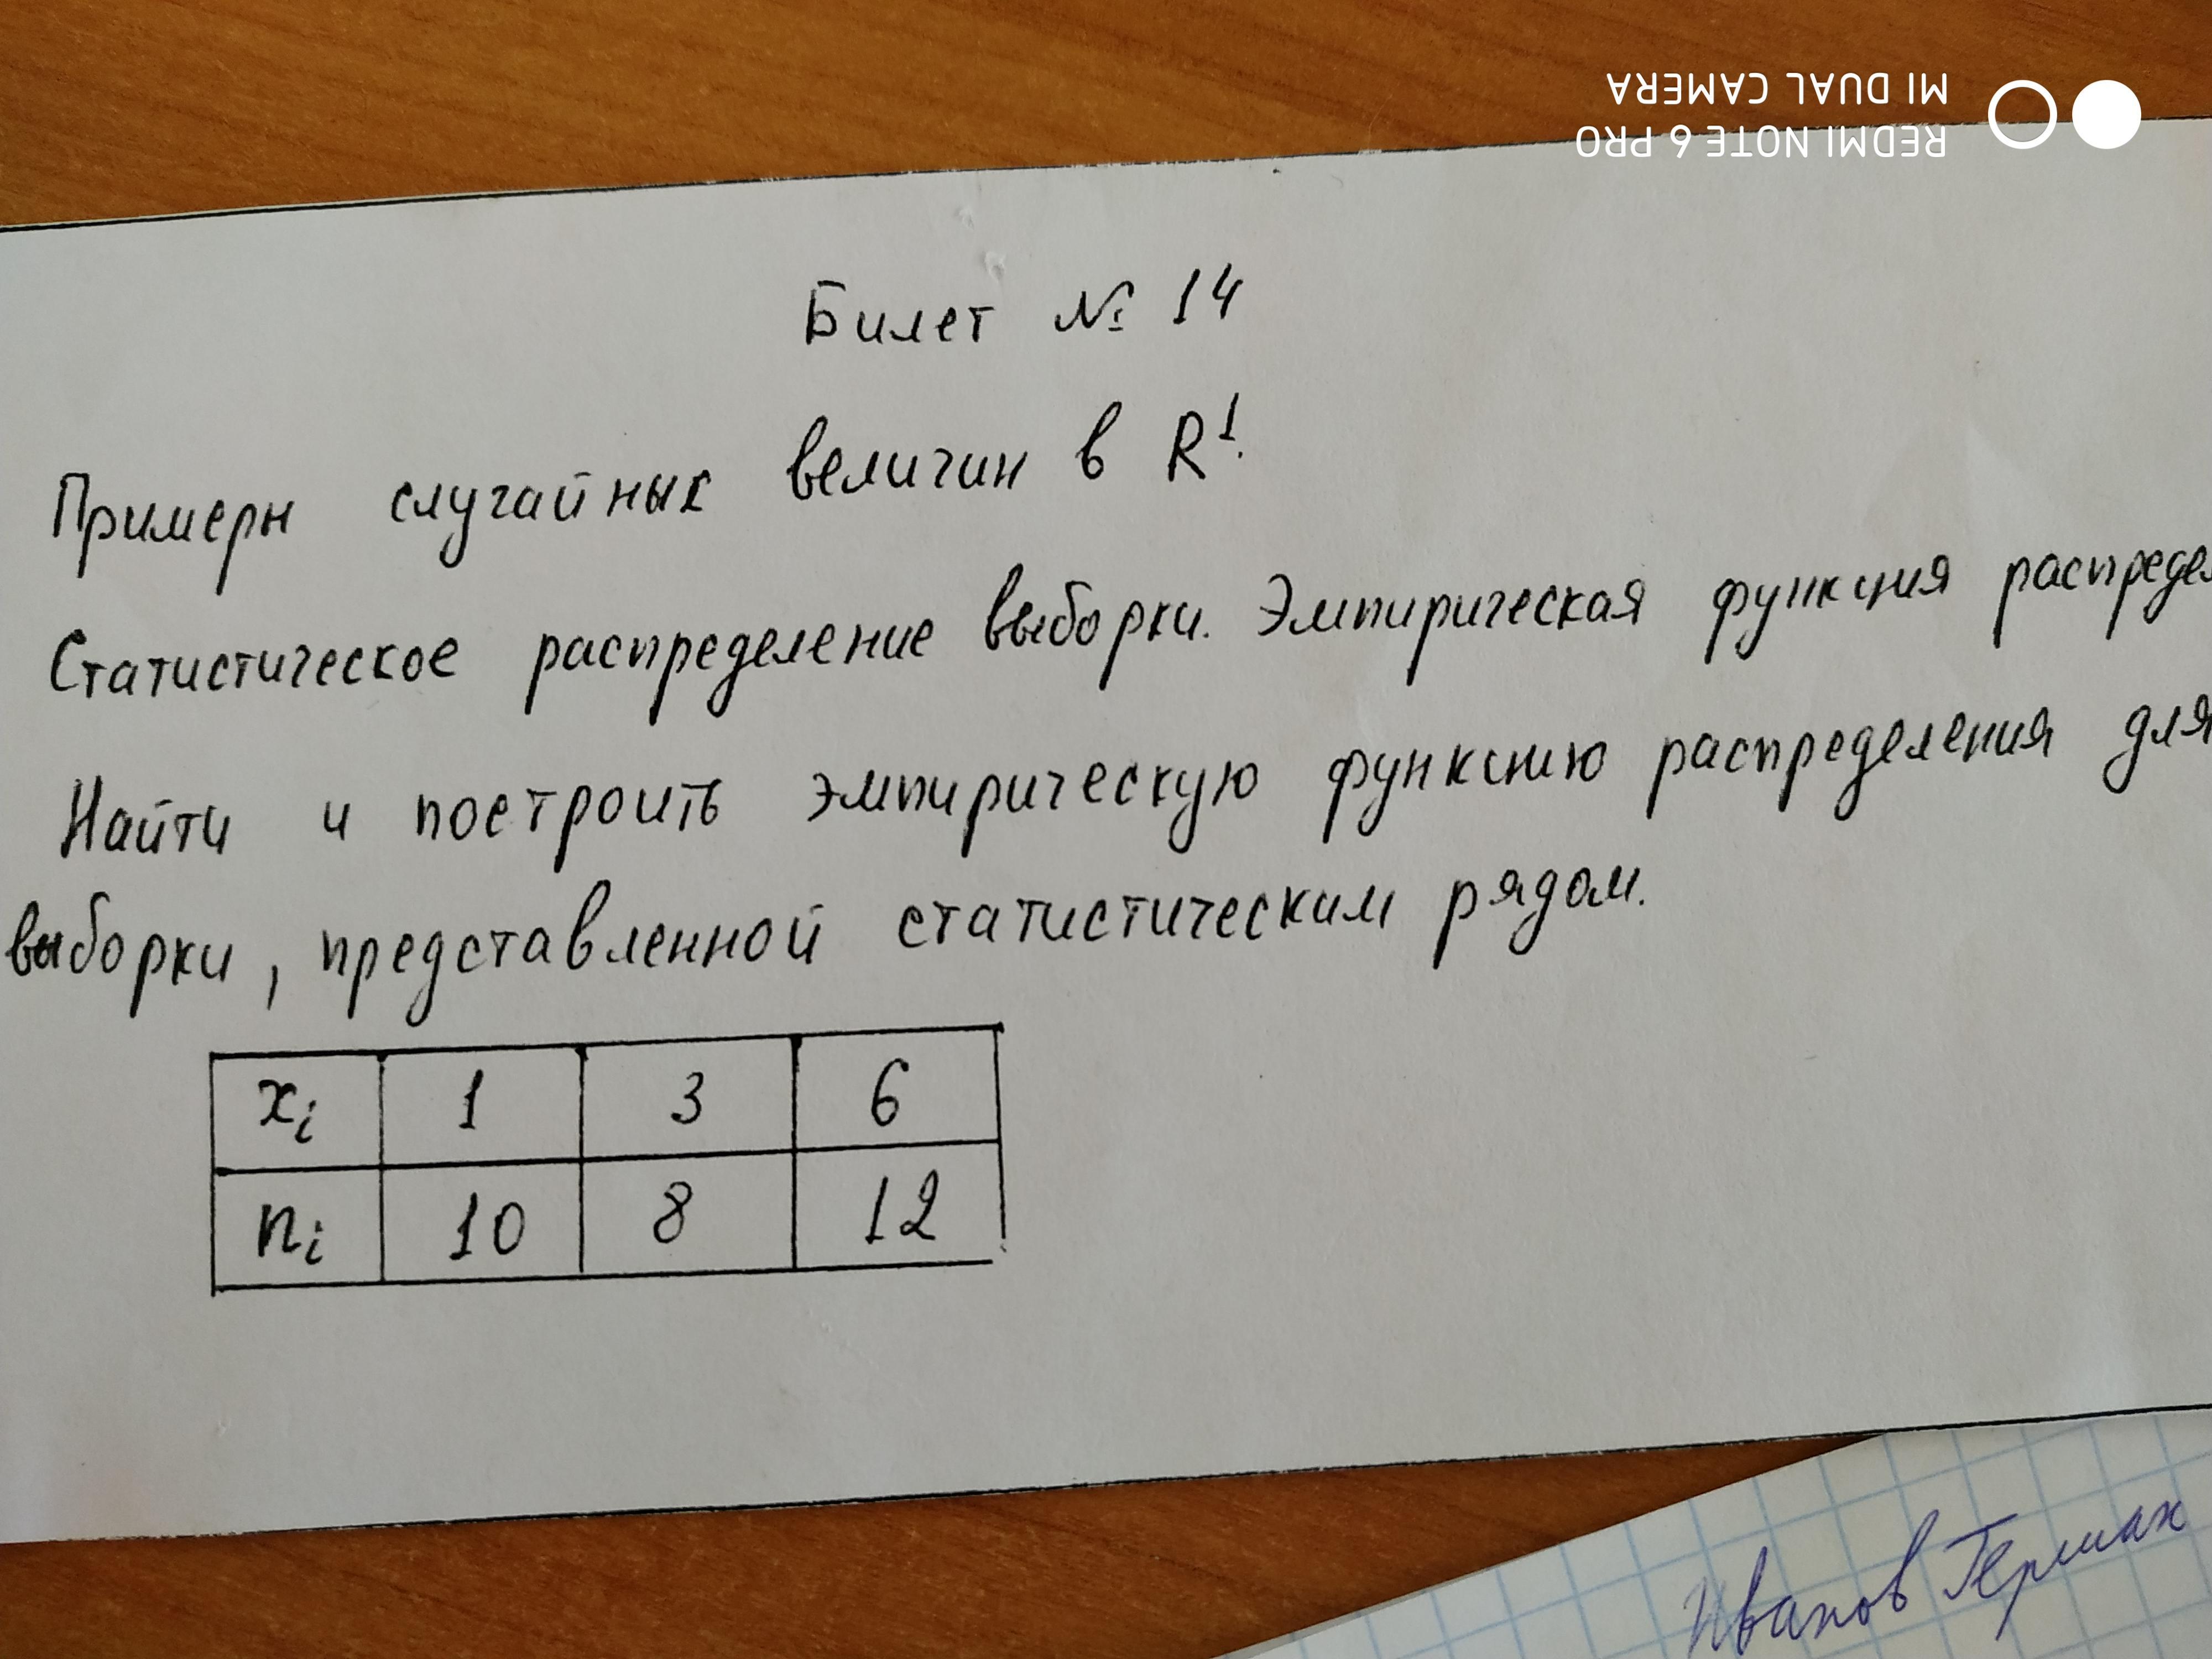 REDMI NOTE 6 PRO
MI DUAL CAMERA
Билет № 14
Примеры случайных величин в R¹.
Статистическое распределение выборки. Эмпирическая функция распредел
Найти и построить эмпирическую функцию распределения для
выборки, представленной статистическим рядом.
xi 1 3 6
ni 10 8 12
Иванов Герман